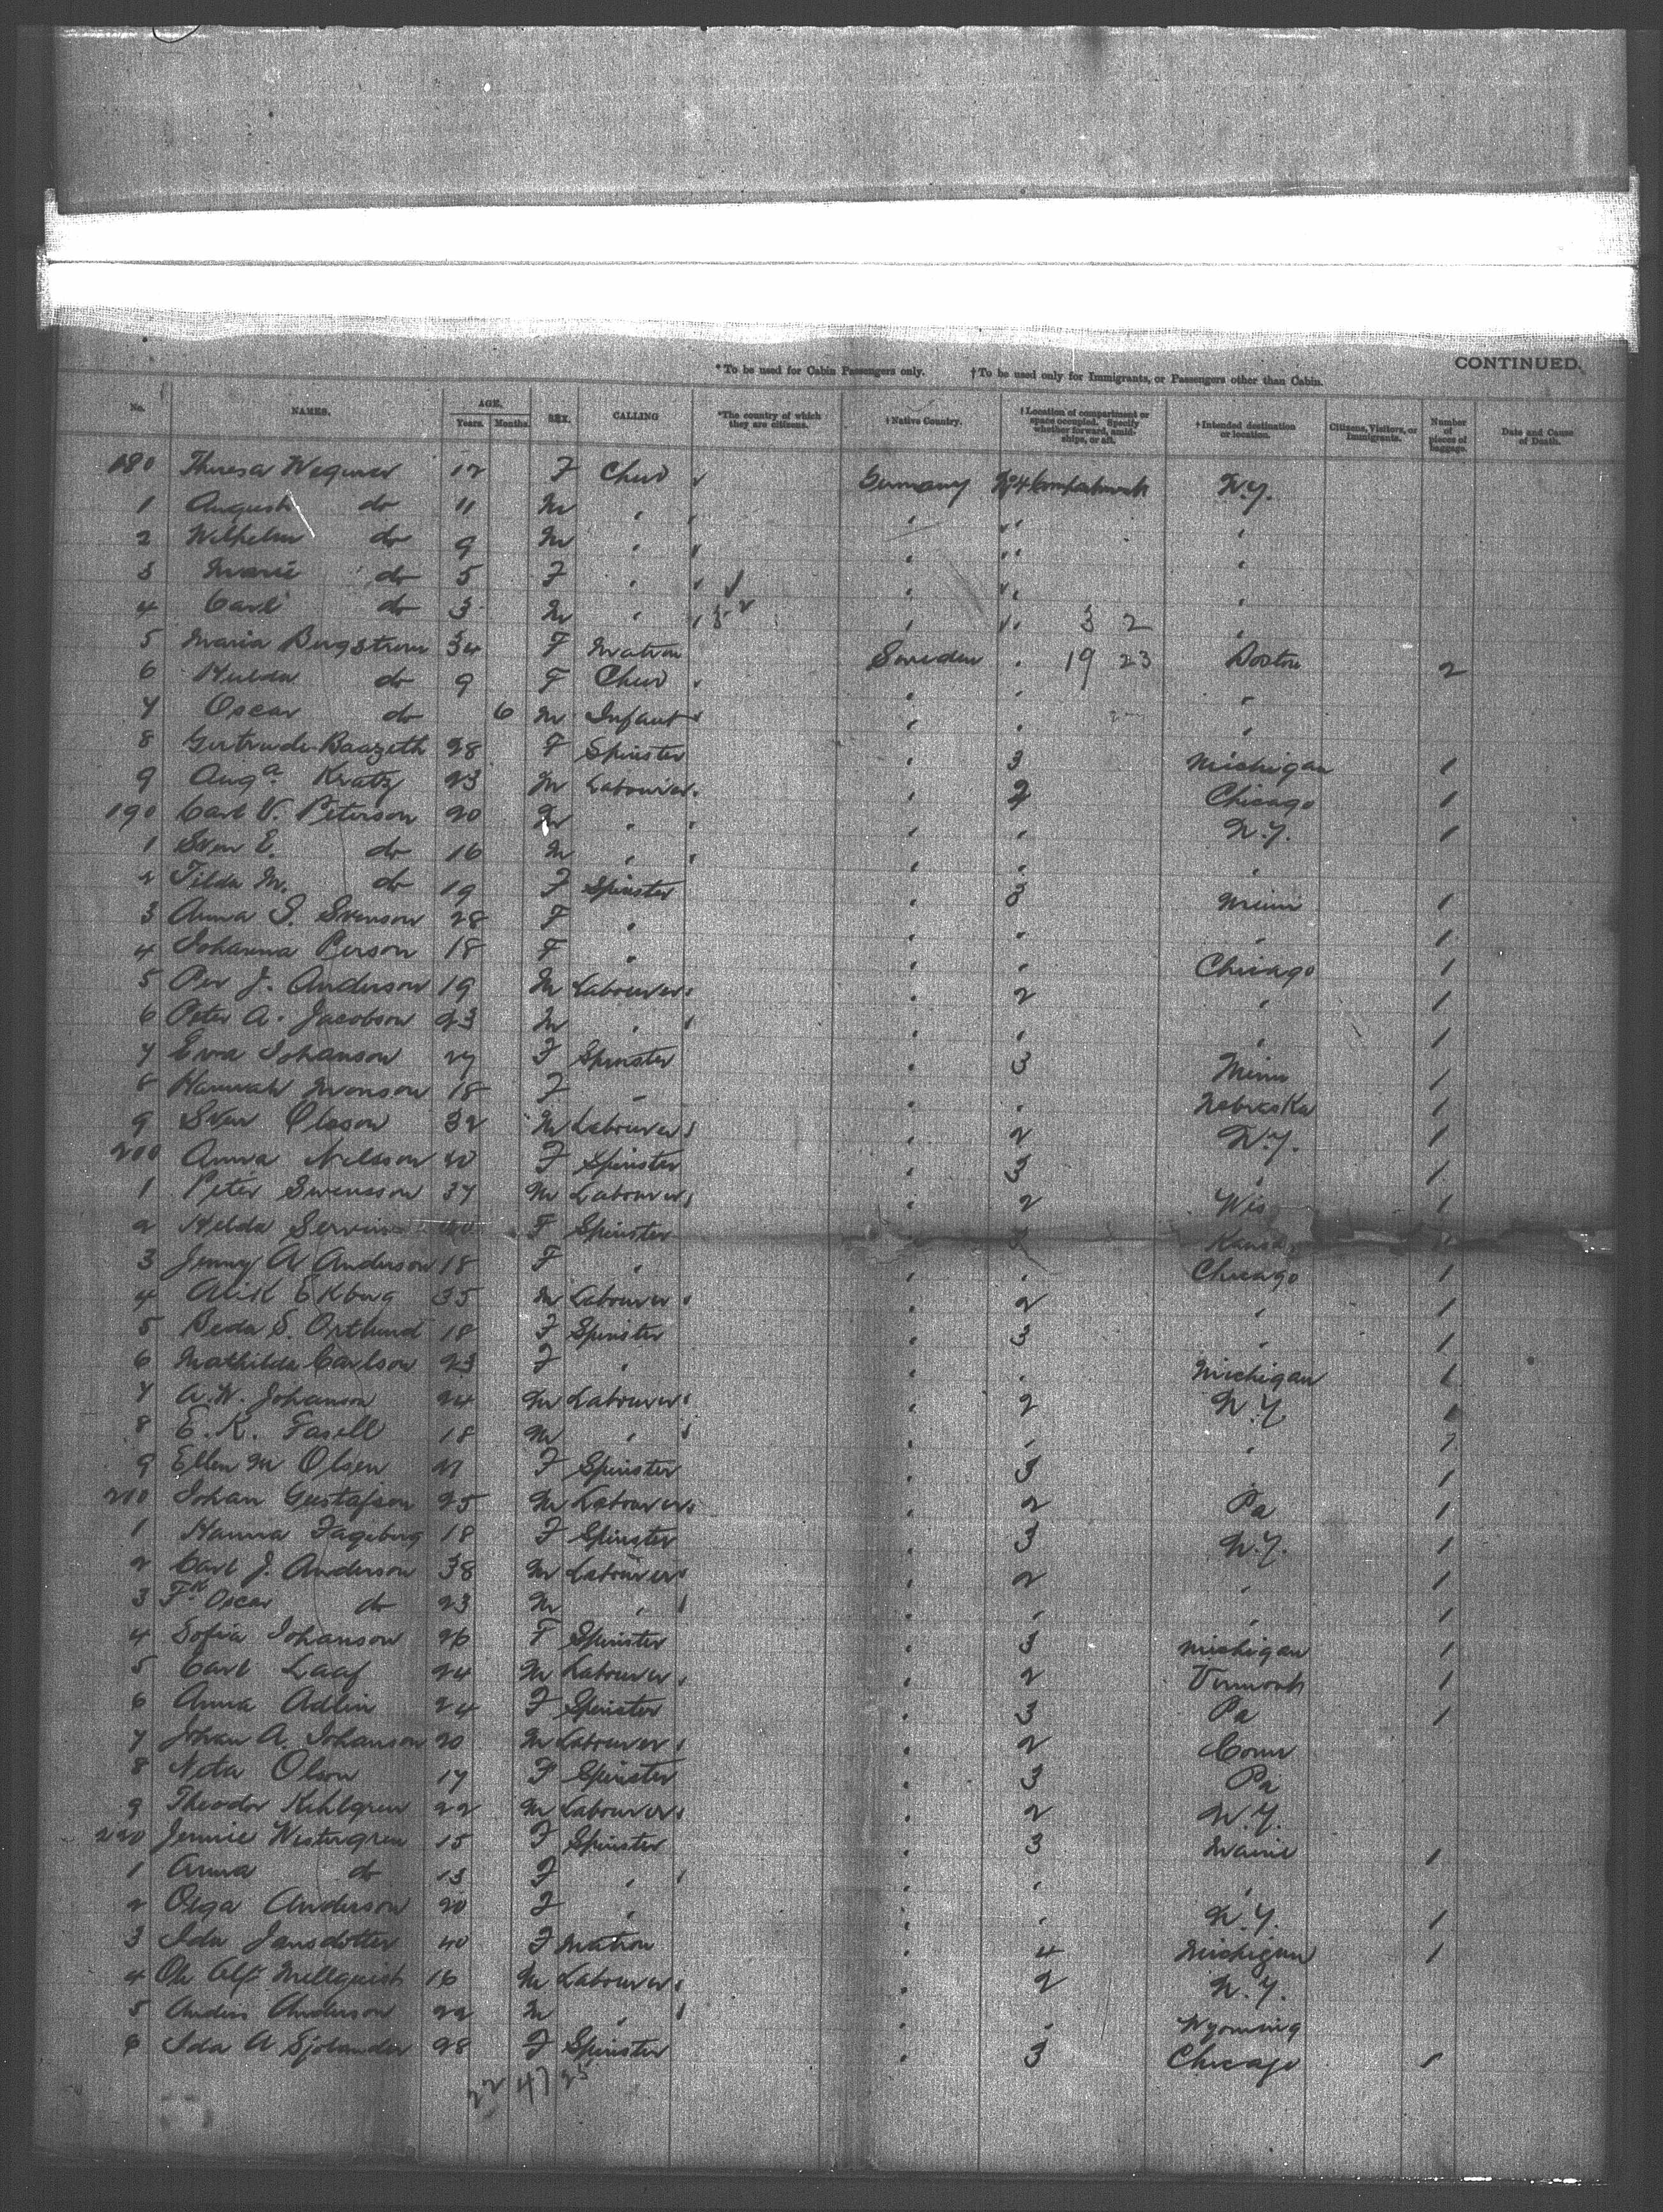 CONTINUED.
*To be used for Cabin Passengers only. †To be used only for Immigrants, or Passengers other than Cabin.
No. NAMES. AGE. Years. Months. SEX. CALLING *The country of which they are citizens. †Native Country. †Location of compartment or space occupied. Specify whether forward, amidships, or aft. †Intended destination or location. Citizens, Visitors, or Immigrants. Number of pieces of baggage. Date and Cause of Death.
180 Theresa Wegener 12 F Germany N.Y.
1 August do 11 M "
2 Wilhelm do 9 M "
3 Marie do 5 F "
4 Carl do 3 M " 3 2
5 Maria Bergstrom 34 F Matron Sweden " 19 23 Boston 2
6 Hulda do 9 F " "
7 Oscar do 6 M Infant " "
8 Gertrude 28 F Spinster " 3 Michigan 1
9 Aug a Kratz 23 M Labourer " 2 Chicago 1
190 Carl V. Peterson 20 M " " " N.Y. 1
1 Sven E. do 16 M " " " "
2 Tilda M. do 19 F Spinster " 3 Minn 1
3 Anna S. Svenson 28 F " " " " 1
4 Johanna Person 18 F " " " Chicago 1
5 Per J. Anderson 19 M Labourer " 2 " 1
6 Peter A. Jacobson 23 M " " " " 1
7 Eva Johanson 27 F Spinster " 3 Minn 1
8 Hannah Monson 18 F " " " Nebraska 1
9 Sven Olsson 32 M Labourer " 2 N.Y. 1
200 Anna Nilsson F Spinster " 3 " 1
1 Peter Swensson 37 M Labourer " 2 Wis 1
2 Hilda F Spinster 3 Kansas
3 Jenny A Anderson 18 F " " " Chicago 1
4 Ekberg 35 M Labourer " 2 " 1
5 Beda S. Ostlund 18 F Spinster " 3 " 1
6 Mathilda Carlson 23 F " " " Michigan 1
7 A.W. Johanson 24 M Labourer " 2 N.Y.
8 E. K. Fasell 18 M " " " " 1
9 Ellen M Olsen 21 F Spinster " 3 1
210 Johan Gustafson 25 M Labourer " 2 Pa 1
1 Hanna Fageberg 18 F Spinster " 3 N.Y. 1
2 Carl J. Anderson 38 M Labourer " 2 " 1
3 Fk Oscar do 23 M " " " " 1
4 Sofia Johanson 26 F Spinster " 3 Michigan 1
5 Carl Laaf 24 M Labourer " 2 Vermont 1
6 Anna Adlin 24 F Spinster " 3 Pa 1
7 Johan A. Johanson 20 M Labourer " 2 Conn
8 Olson 17 F Spinster " 3 Pa
9 Theodor Kihlgren 22 M Labourer " 2 N.Y.
220 Jennie Westergren 15 F Spinster " 3 Maine 1
1 Anna do 13 F " " " "
2 Olga Anderson 20 F " " " N.Y. 1
3 Ida Jansdotter 40 F Matron " 4 Michigan 1
4 Mellquist 16 M Labourer " 2 N.Y.
5 Anders Anderson 22 M " " " Wyoming
6 Ida A Sjolander 28 F Spinster " 3 Chicago 1
22 47 25